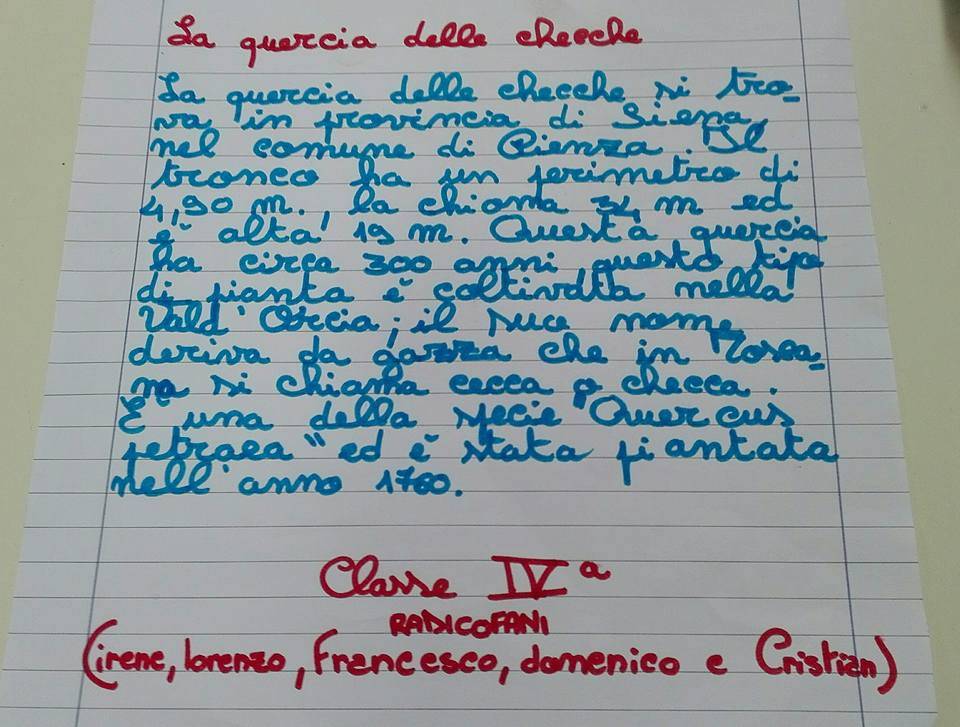 La quercia delle checche
La quercia delle checche si tro-
va in provincia di Siena,
nel comune di Pienza. Il
tronco ha un perimetro di
4,90 m., la chioma 34 m ed
è alta 19 m. Questa quercia
ha circa 300 anni questo tipo
di pianta è coltivata nella
Vald'Orcia; il suo nome
deriva da gazza che in Tosca-
na si chiama cecca o checca.
È una della specie "Quercus
petraea" ed è stata piantata
nell'anno 1760.
Classe IVª
RADICOFANI
(irene, lorenzo, Francesco, domenico e Cristian)